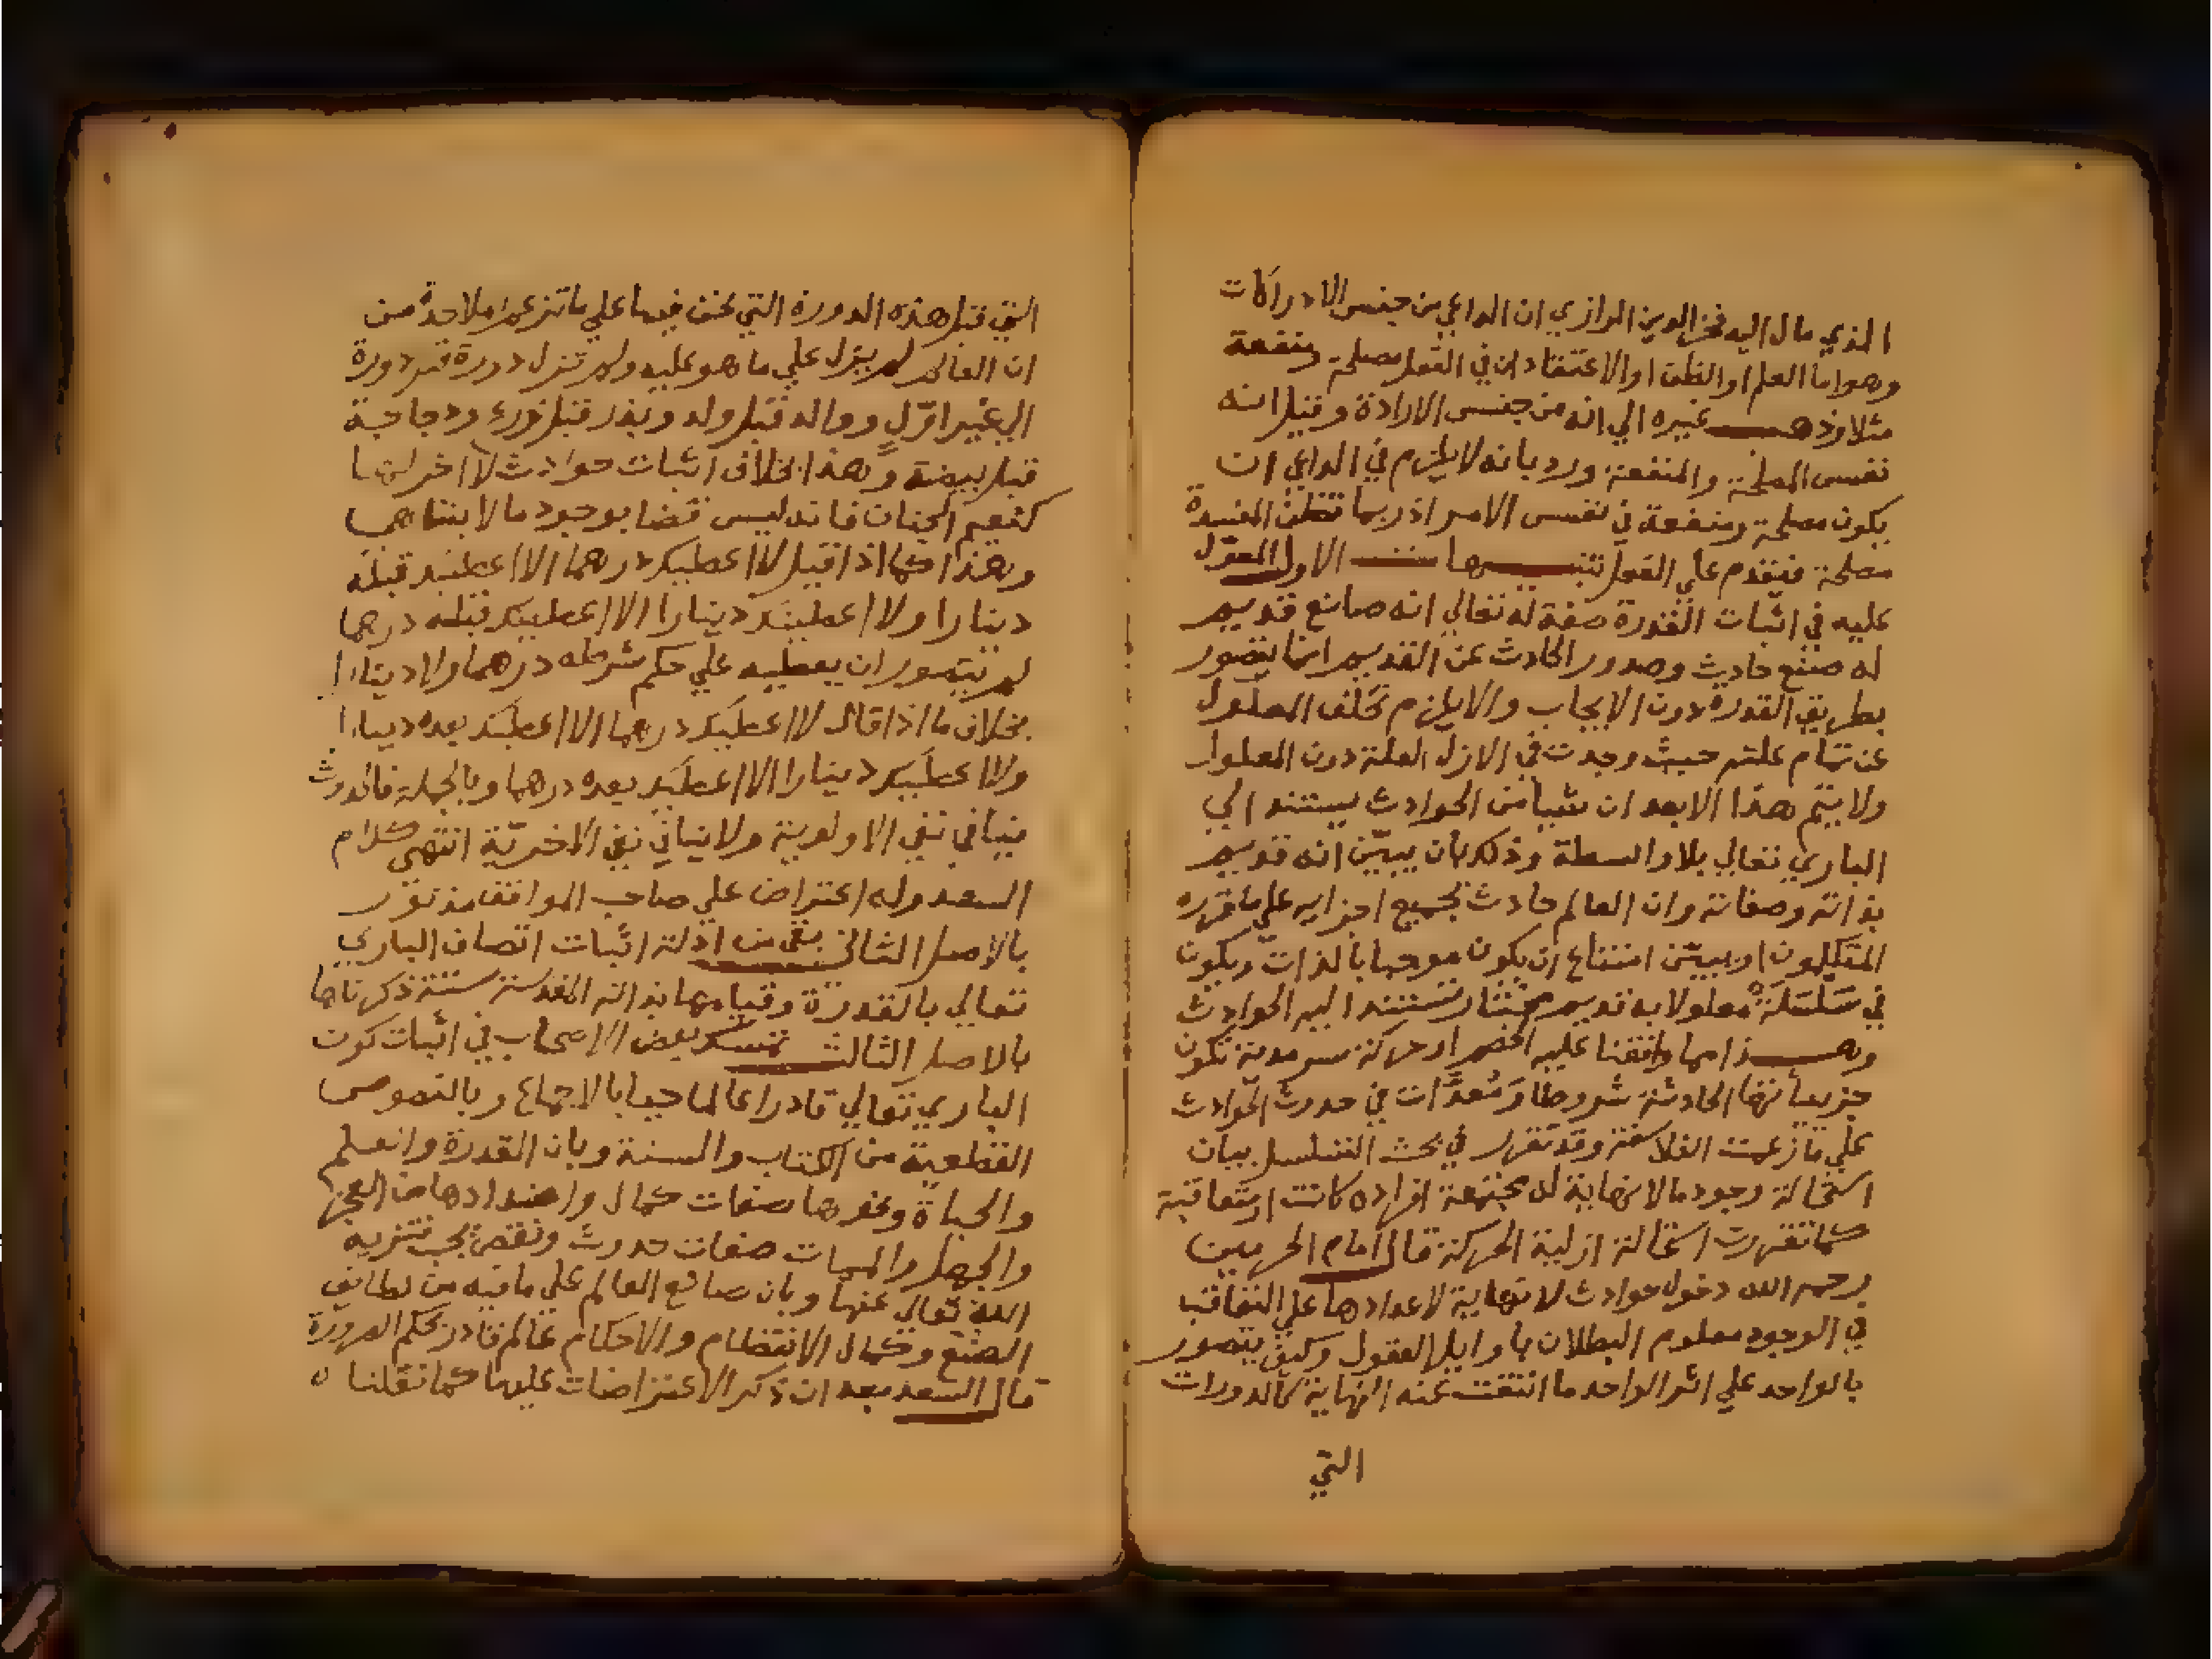 الذي مال اليه فخر الدين الرازي ان الداعي من جنس الادراكات
وهو اما العلم او الظن او الاعتقاد ان في الفعل مصلحة ومنفعة
مثلا وذهب غيره الي انه من جنس الارادة وقيل انه
نفس المصلحة والمنفعة ورد بانه لا يلزم في الداعي ان
يكون مصلحة ومنفعة في نفس الامر اذ ربما تظن المفسدة
مصلحة فيقدم علي الفعل تنبيهات الاول المعوّل
عليه في اثبات القدرة صفة له تعالي انه صانع قديم
له صنع حادث وصدور الحادث عن القديم انما يتصور
بطريق القدرة دون الايجاب والا يلزم تخلف المعلول
عن تمام علته حيث وجدت في الازل العلة دون المعلول
ولا يتم هذا الا بعد ان شيا من الحوادث يستند الي
الباري تعالي بلا واسطة وذلك بان يبيّن انه قديم
بذاته وصفاته وان العالم حادث بجميع اجزايه علي ما قرره
المتكلمون او يبيّن امتناع ان يكون موجبا بالذات ويكون
في سَلسَلَة معلولاته قديم مختار تستند اليه الحوادث
وهذا مما وافقنا عليه الخصم او حركة سرمدية تكون
جزيياتها الحادثة شروطا ومُعدَّات في حدوث الحوادث
علي ما زعمت الفلاسفة وقد تقرر في بحث التسلسل بيان
استحالة وجود ما لا نهاية له مجتمعة افراده كانت او متعاقبة
كما تقررت استحالة ازلية الحركة قال امام الحرمين
رحمه الله دخول حوادث لا نهاية لاعدادها علي التعاقب
في الوجود معلوم البطلان باوايل العقول وكيف يتصور
بالواحد علي اثر الواحد ما انتفت عنه النهاية كالدورات
التي
التي قبل هذه الدورة التي نحن فيها علي ما تزعم ملاحدة من
ان العالم لم يزل علي ما هو عليه ولم تزل دورة قبل دورة
الي غير اوّل ووالد قبل ولد وبذر قبل زرع ودجاجة
قبل بيضة وهذا بخلاف اثبات حوادث لا اخر لها
كنعيم الجنان فانه ليس قضا بوجود ما لا يتناهي
وهذا كما اذا قيل لا اعطيك درهما الا اعطيتك قبله
دينارا ولا اعطيتك دينارا الا اعطيتك قبله درهما
لم يتصور ان يعطيه علي حكم شرطه درهما ولا دينارا
بخلاف ما اذا قال لا اعطيك درهما الا اعطيتك بعده دينارا
ولا اعطيك دينارا الا اعطيتك بعده درهما وبالجملة فالحدوث
ينافي نفي الاولوية ولا ينافي نفي الاخرية انتهي كلام
السعد وله اعتراض علي صاحب المواقف مذكور
بالاصل الثاني بقي من ادلة اثبات اتصاف الباري
تعالي بالقدرة وقيامها بذاته المقدسة ستة ذكرناها
بالاصل الثالث تمسك بعض الاصحاب في اثبات كون
الباري تعالي قادرا عالما حيا بالاجماع وبالنصوص
القطعية من الكتاب والسنة وبان القدرة والعلم
والحياة ونحوها صفات كمال واضدادها من العجز
والجهل والممات صفات حدوث ونقص يجب تنزيه
الله تعالي عنها وبان صانع العالم علي ما فيه من لطايف
الصنع وكمال الانتظام والاحكام عالم قادر بحكم الضرورة
قال السعد بعد ان ذكر الاعتراضات عليها كما نقلنا ه